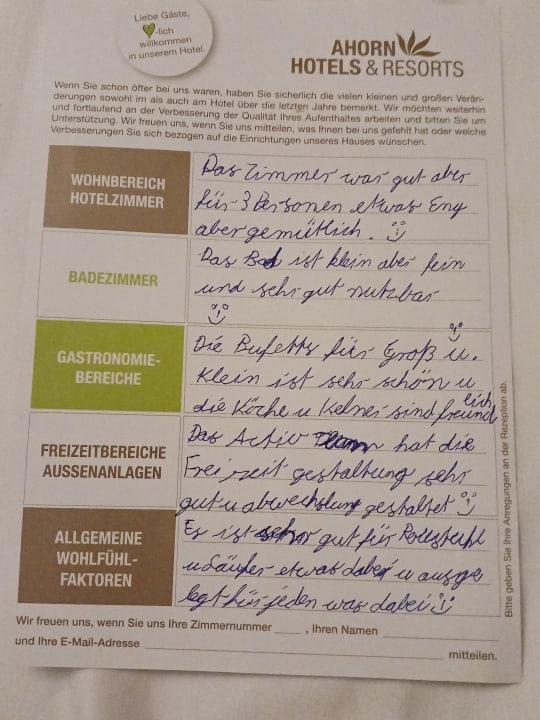 Liebe Gäste,
-lich
willkommen
in unserem Hotel.
AHORN
HOTELS & RESORTS
Wenn Sie schon öfter bei uns waren, haben Sie sicherlich die vielen kleinen und großen Verän-
derungen sowohl im als auch am Hotel über die letzten Jahre bemerkt. Wir möchten weiterhin
und fortlaufend an der Verbesserung der Qualität Ihres Aufenthaltes arbeiten und bitten Sie um
Unterstützung. Wir freuen uns, wenn Sie uns mitteilen, was Ihnen bei uns gefehlt hat oder welche
Verbesserungen Sie sich bezogen auf die Einrichtungen unseres Hauses wünschen.
WOHNBEREICH
HOTELZIMMER
Das Zimmer war gut aber
für 3 Personen etwas Eng
aber gemütlich.
BADEZIMMER
Das Bad ist klein aber fein
und sehr gut nutzbar
GASTRONOMIE-
BEREICHE
Die Bufetts für Groß u.
Klein ist sehr schön u
die Köche u Kelner sind freundlich
FREIZEITBEREICHE
AUSSENANLAGEN
Das Activ Team hat die
Freizeit gestaltung sehr
gut u abwechslung gestaltet
ALLGEMEINE
WOHLFÜHL-
FAKTOREN
Es ist sehr gut für Rollstuhl
u Läufer etwas dabei u ausge
legt für jeden was dabei
Wir freuen uns, wenn Sie uns Ihre Zimmernummer ____ , Ihren Namen ____
und Ihre E-Mail-Adresse ____ mitteilen.
Bitte geben Sie Ihre Anregungen an der Rezeption ab.